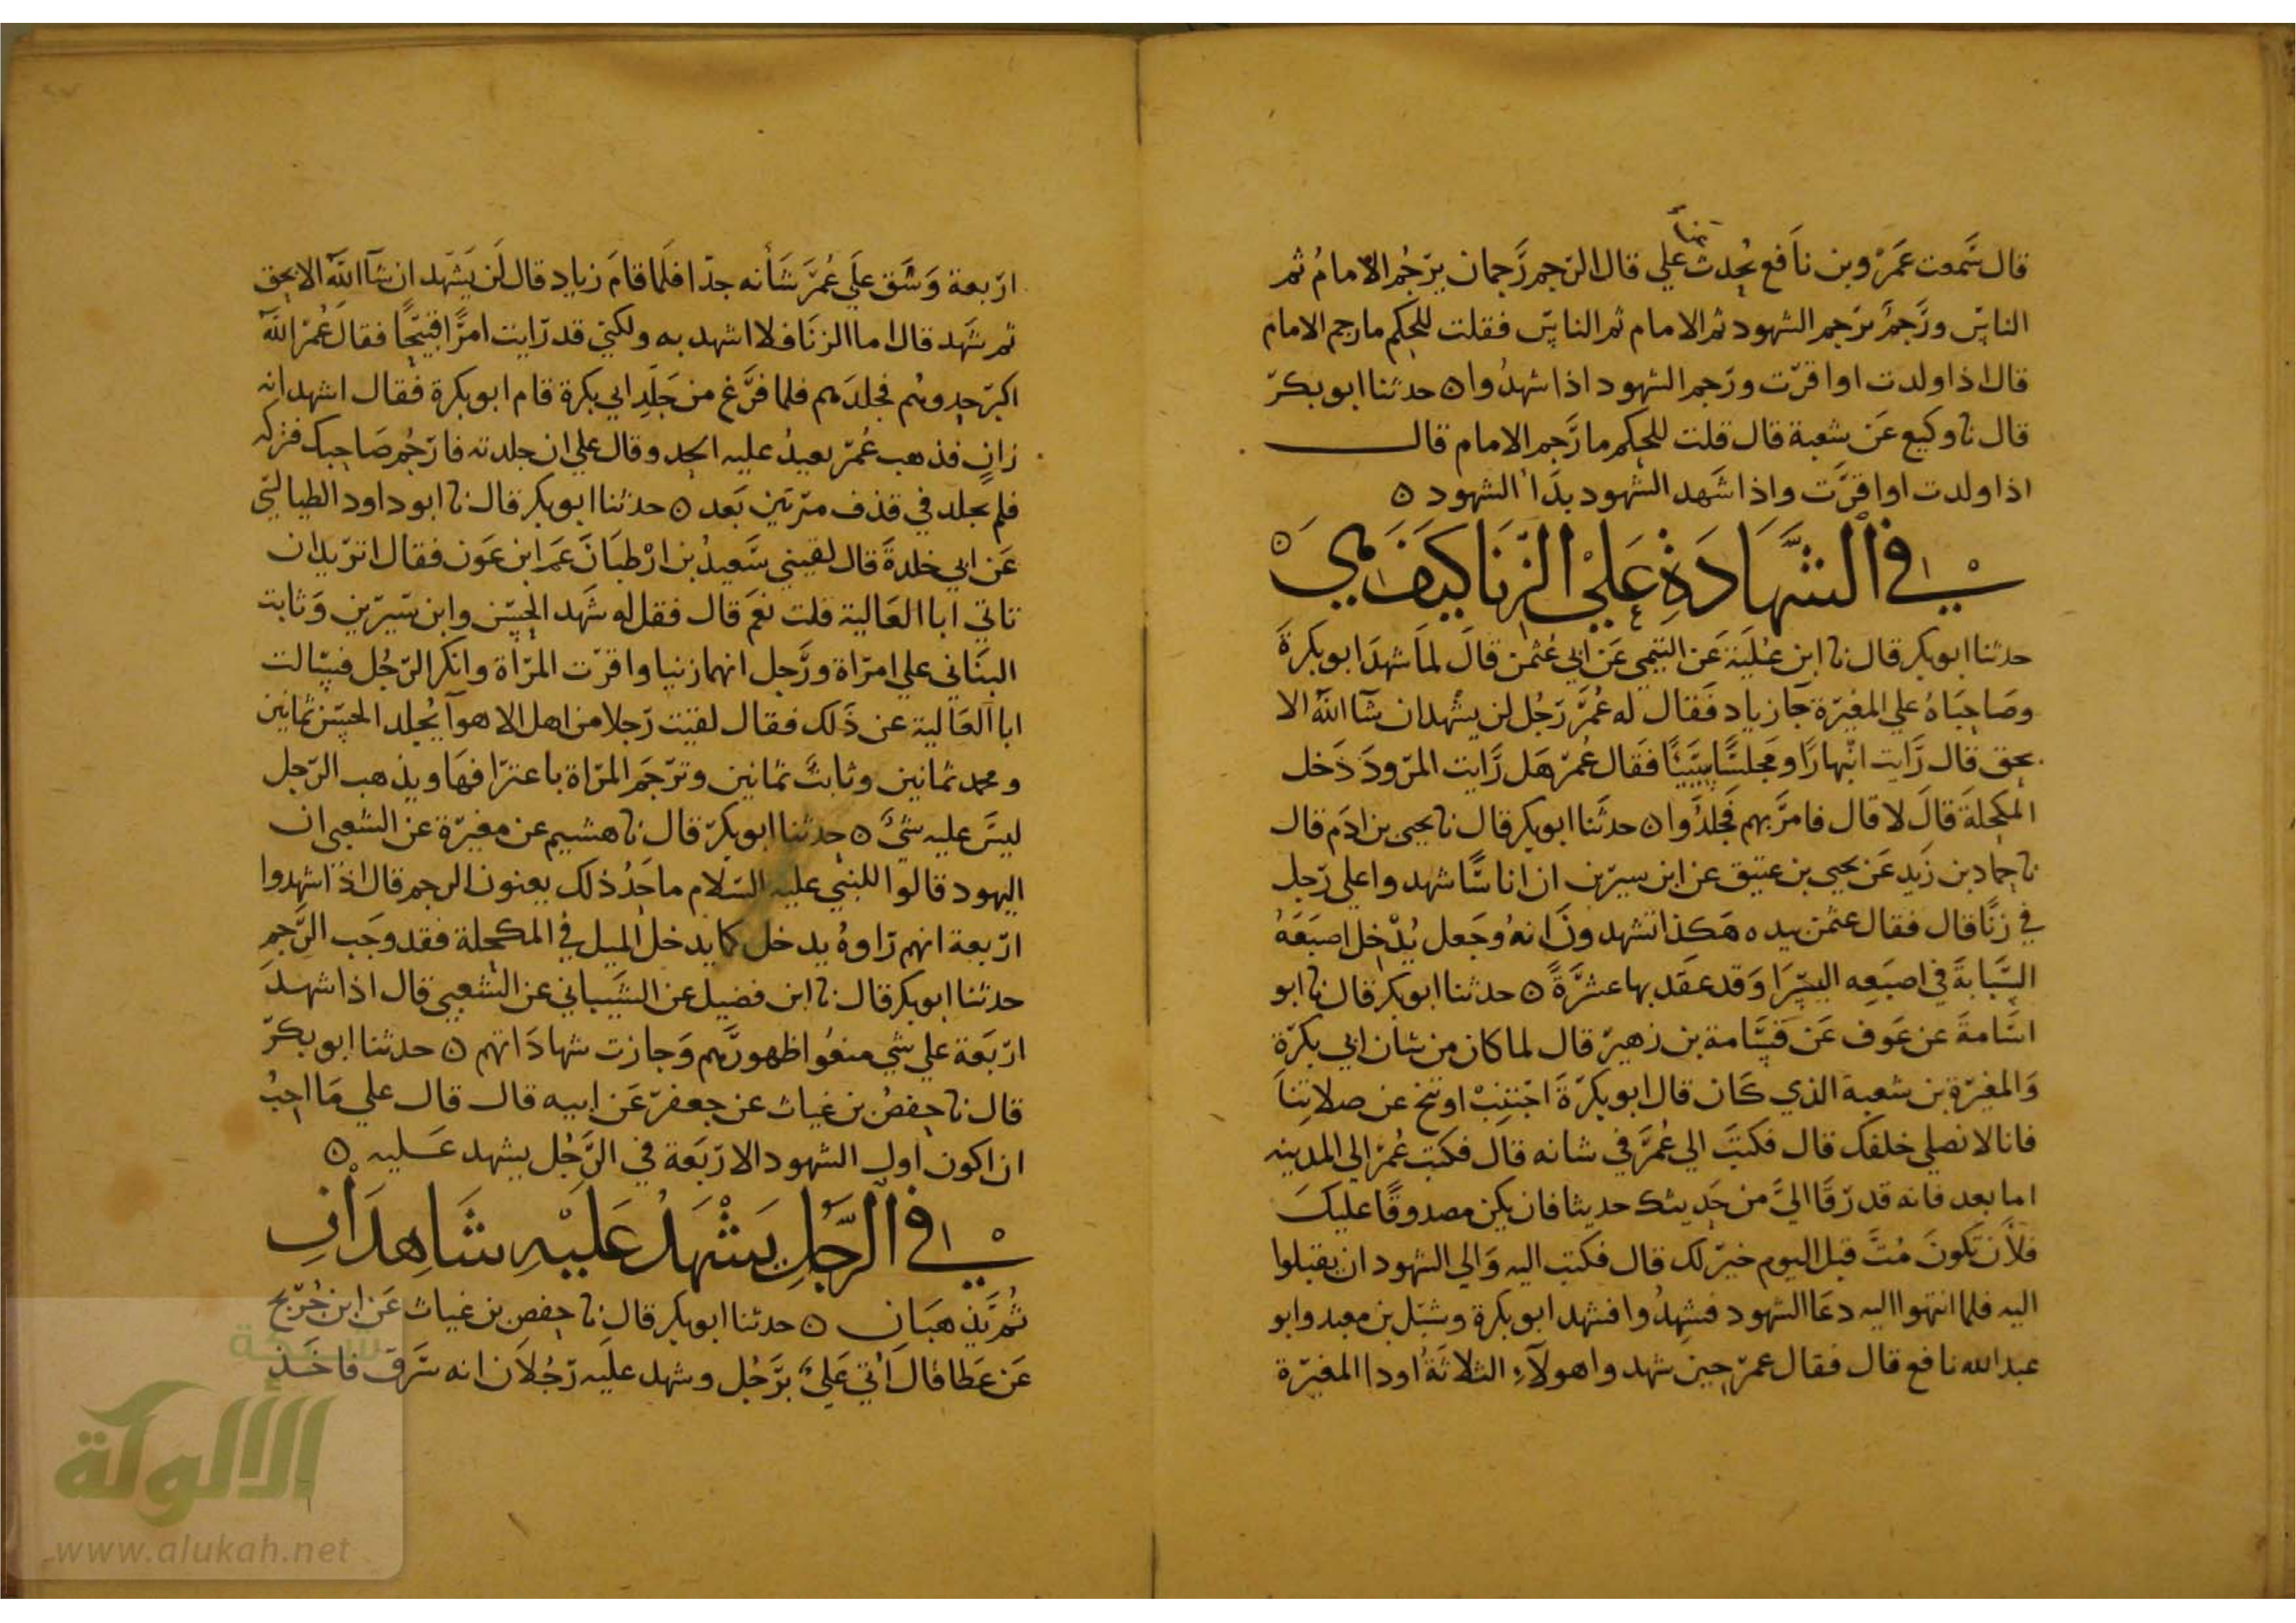 قال سَمعت عَمرو بن نافع يُحدث عن علي قال الرجم رَجمان يرجُم الامامُ ثم
الناس ورَجمٌ يرجم الشهود ثم الامام ثم الناس فقلت للحكم ما رجم الامام
قال اذا ولدت او اقرت ورجم الشهود اذا شهدُوا ه حدثنا ابو بكر
قال نا وكيع عَن شعبة قال قلت للحكم ما رَجم الامام قال
اذا ولدت او اقرَّت واذا شَهد الشهود بدَأ الشهود ه
في الشَّهَادَةِ عَلَي الزِّنَا كَيفَ هِيَ ه
حدثنا ابو بكر قال نا ابن عُليَة عَن التيمي عَن ابي عُثمن قالَ لمَا شهدَ ابو بكرةَ
وصَاحبَاهُ علي المغيرة جآ زياد فَقال له عُمَرُ رَجُل لن يشهد ان شآ اللهُ الا
بحق قال رَايت انبهارًا ومَجلسًا سَيّئًا فَقال عُمَر هَل رَايت المرودَ دَخل
المكحلةَ قالَ لا قال فامرَ بهم فَجُلدُوا ه حدثنا ابو بكر قال نا يحيى بن ادَم قال
نا حماد بن زَيد عَن يحيي بن عتيق عن ابن سيرين ان اناسًا شهدوا علي رَجل
في زنًا قال فقال عثمن بيده هَكذا تشهدونَ انهُ وجَعل يُدْخل اصبَعَهُ
السَّبابَةَ في اصبَعِه اليسرَا وَقد عَقَد بها عَشَرَةً ه حدثنا ابو بكر قال نا ابو
اسَامةَ عن عَوف عَن قسَامة بن زهير قال لما كان من شان ابي بكرَة
وَالمغيرة بن شعبة الذي كَان قال ابو بكرَةَ اجْتنِبْ او تنح عن صلاتنا
فانا لا نصلي خلفك قال فكتبَ الي عُمَرَ في شانه قال فكتب عُمَر الي المدينه
اما بعد فانه قد رقَا اليَّ من حَديثك حديثا فان يكن مصدوقًا عليكَ
فلأَن تكونَ مُتَّ قبل اليوم خير لك قال فكتب اليه وَالي الشهود ان يقبلوا
اليه فلما انتهوا اليه دعَا الشهود فشهِدُوا فشهد ابو بكرة وشبل بن معبد وابو
عبد الله نافع قال فقال عمر حين شهدوا هولآءِ الثلاثَةُ اودا المغيرة
اربعة وَشَق عَلَي عُمَرَ شَأنه جدّا فلما قامَ زياد قال لَن يَشهد ان شآ اللهُ الا بحق
ثم شَهد قال اما الزنَا فلا اشهد به ولكني قد رَايت امرًا قبيحًا فقالَ عُمَر اللهُ
اكبر حدوهُم فجلدَهم فلما فرَغ من جَلدِ ابي بكرة قام ابو بكرة فقال اشهد انه
زانٍ فذهب عُمَر يعيدُ عليه الحد وقال علي ان جلدته فارجُم صَاحبك فتركه
فلم يجلد في قذف مرتين بَعد ه حدثنا ابو بكر قال نا ابو داود الطيالسي
عَن ابي خلدةَ قال لقيني سَعيدُ بن ارْطبَانَ عَم ابن عَون فقال اتريد ان
تاتي ابا العَالية قلت نعَم قال فقل له شهد الحسن وابن سيرين وَثابت
البنَاني علي امراة ورَجل انهما زنيا واقرت المرَاة وانكر الرجُل فسالت
ابا العَالية عن ذَلك فقال لقيت رَجلا من اهل الاهوآ يُجلد الحسن ثمانين
ومحمد ثمانين وثابتٌ ثمانين وترجَم المرَاة باعترافهَا ويذهب الرَجل
ليسَ عليه شيٌ ه حدثنا ابو بكر قال نا هشيم عن مغيرة عن الشعبي ان
اليهود قالوا للنبي عليه السَلام ما حَدُ ذلك يعنون الرجم قال اذا شهدوا
اربعة انهم رَاوهُ يدخل كما يدخل الميل في المكحلة فقد وجَب الرَجم
حدثنا ابو بكر قال نا ابن فضيل عن الشَيباني عن الشعبي قال اذا شهد
اربَعة علي شي منعُوا ظهورَهم وَجازت شهادَاتهم ه حدثنا ابو بكر
قال نا حفصُ بن غياث عن جعفر عَن ابيه قال قال علي مَا احبُ
ان اكون اول الشهود الاربَعة في الرَجُل يشهد عَليه ه
في الرَّجُلِ يَشْهَدُ عَلَيْهِ شَاهِدَانِ
ثُمَّ يَذْهَبَانِ ه حدثنا ابو بكر قال نا حفص بن غياث عَن ابن جُرَيج
عَن عَطا قالَ اُتي عَليٌ برَجُل وشهد عليه رَجُلاَن انه سَرَق فاخَذ
شبكة
الألوكة
www.alukah.net